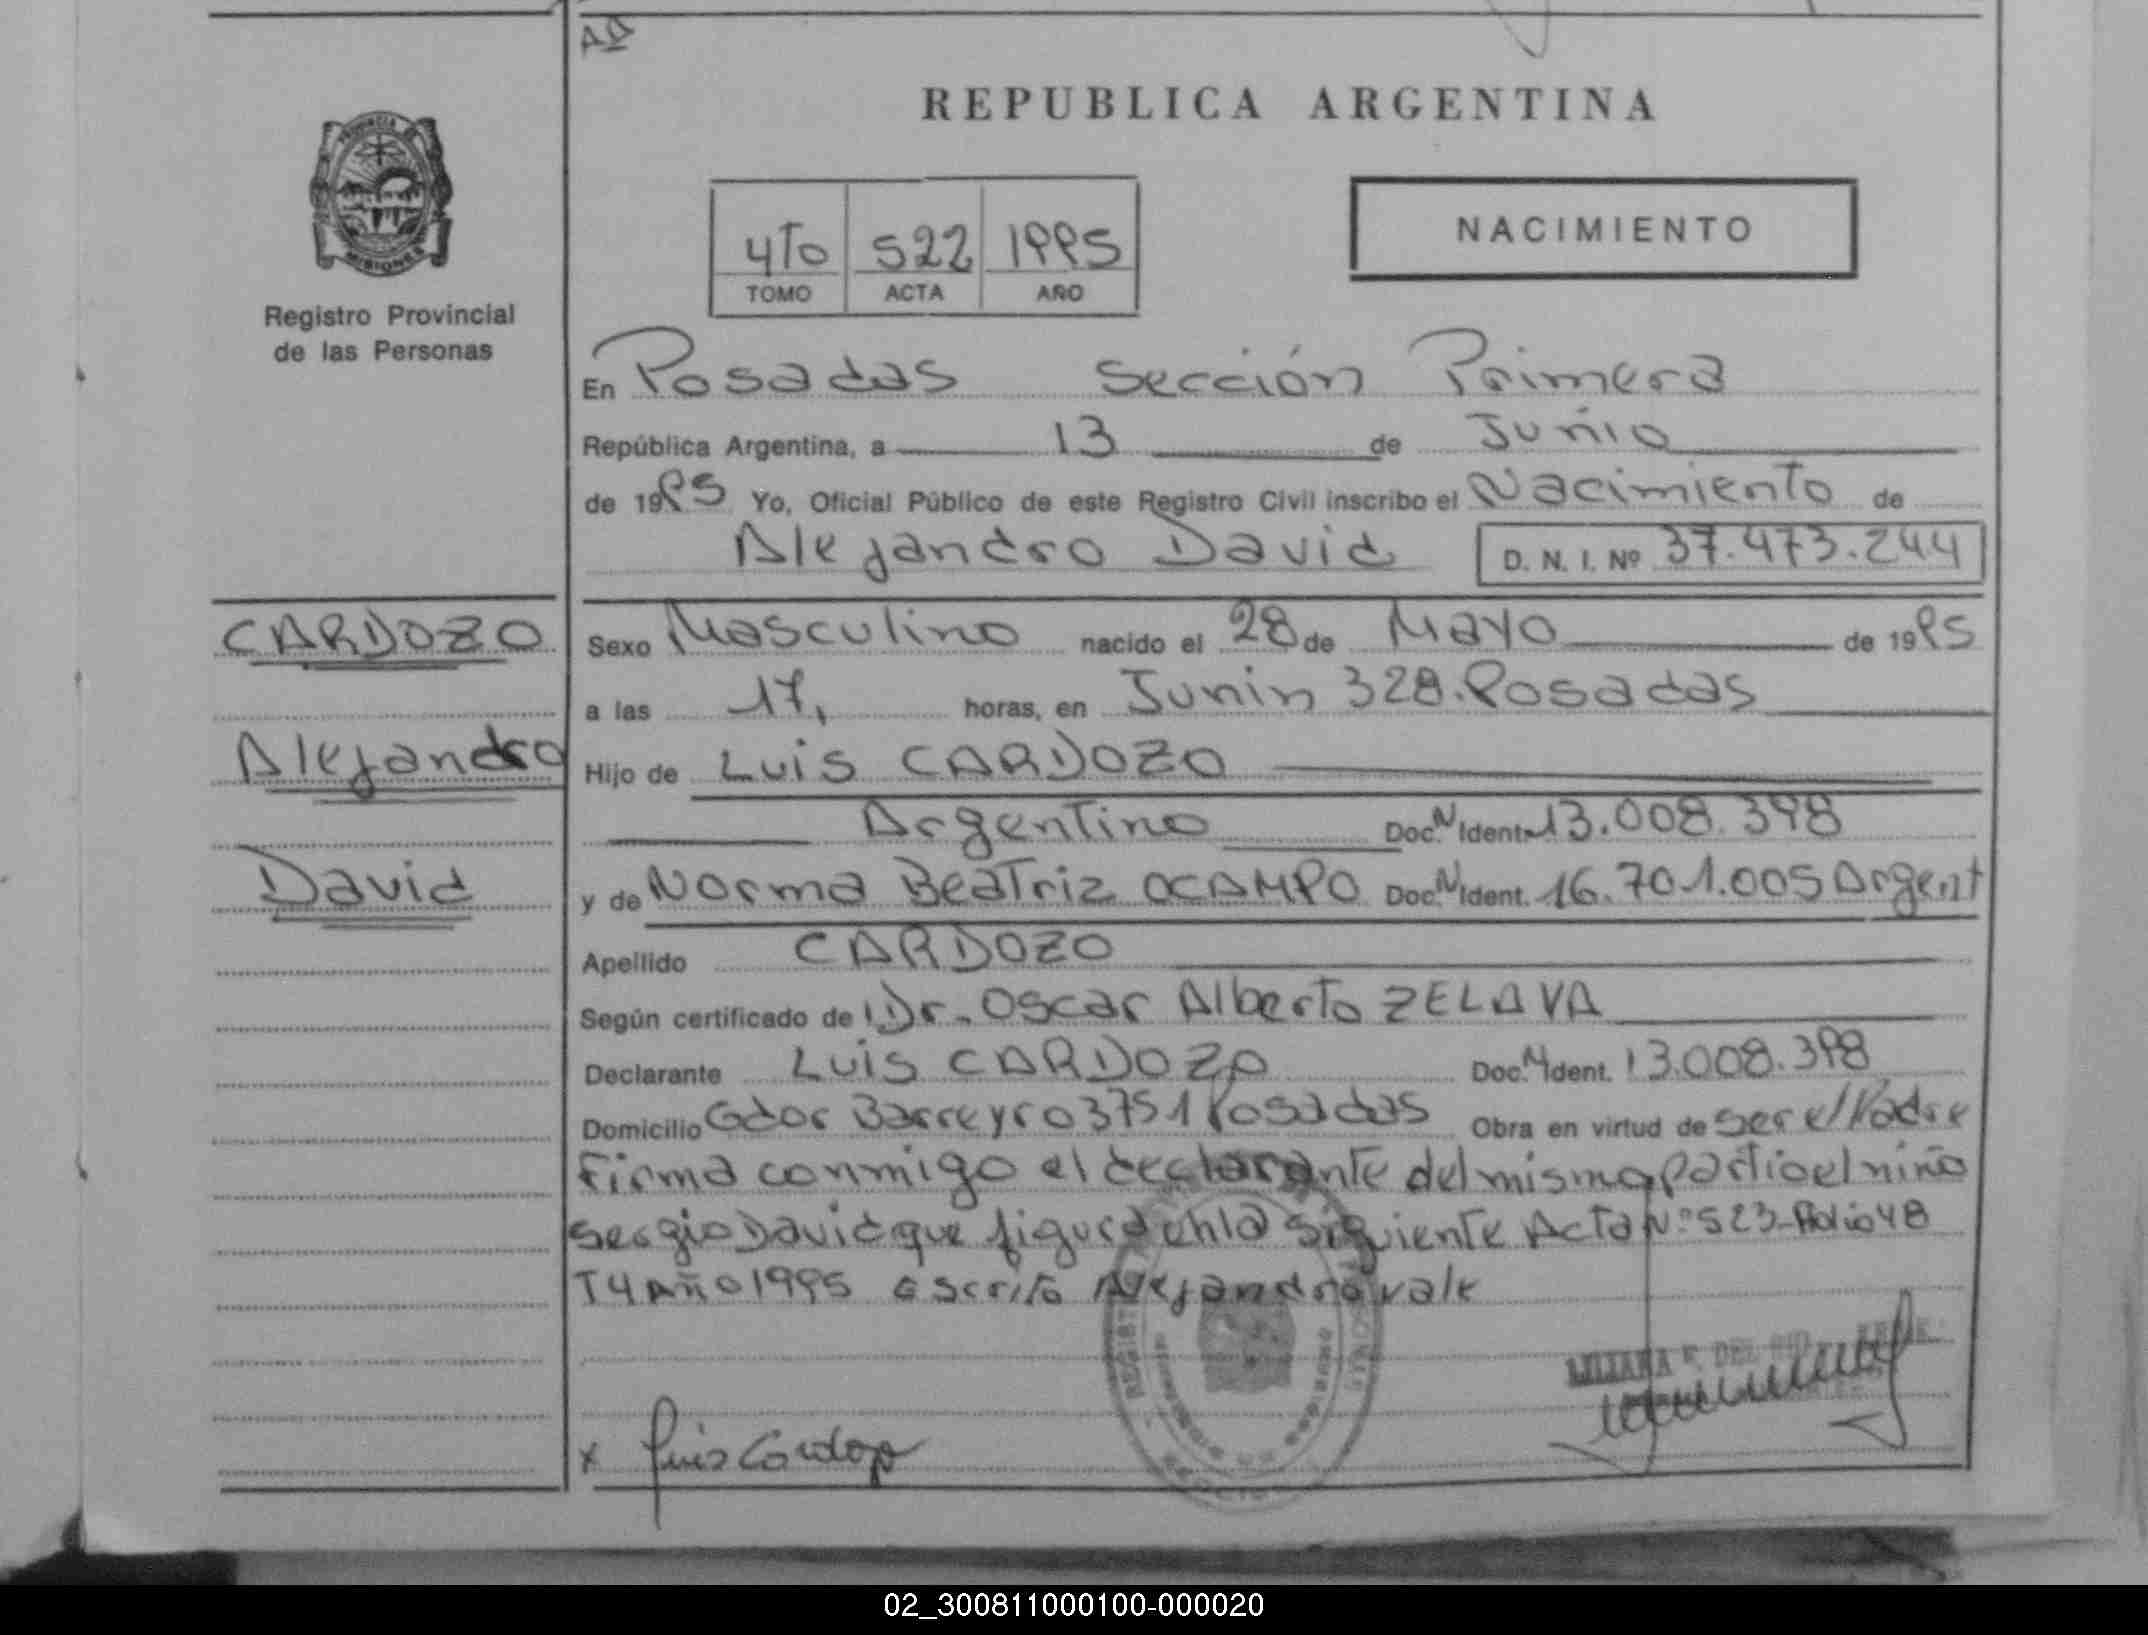 AD
REPUBLICA ARGENTINA
PROVINCIA DE
MISIONES
Registro Provincial
de las Personas
4To 522 1995
TOMO ACTA AÑO
NACIMIENTO
En Posadas Sección Primera
República Argentina, a 13 de Junio
de 1995 Yo, Oficial Público de este Registro Civil inscribo el Nacimiento de
Alejandro David D. N. I. Nº 37.473.244
CARDOZO
Alejandro
David
Sexo Masculino nacido el 28 de Mayo de 1995
a las 17, horas, en Junin 328. Posadas
Hijo de Luis CARDOZO
Argentino Doc. N Ident. 13.008.398
y de Norma Beatriz OCAMPO Doc. N Ident. 16.701.005 Argent
Apellido CARDOZO
Según certificado de Dr. Oscar Alberto ZELAYA
Declarante Luis CARDOZO Doc. N Ident. 13.008.398
Domicilio Gdor Barreyro 3751 Posadas Obra en virtud de ser el Padre
Firma conmigo el declarante del mismo partio el niño
Sergio David que figura en la siguiente Acta Nº 523-Folio 48
T4 Año 1995 escrito Alejandro vale
LILIANA DEL
x Luis Cardozo
02_300811000100-000020